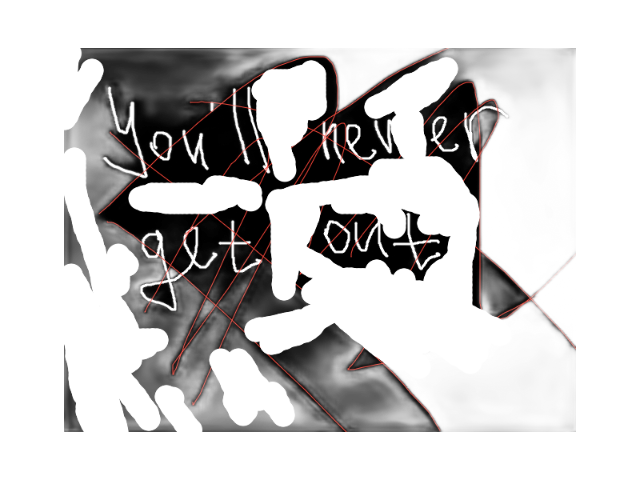 You'll never
get out